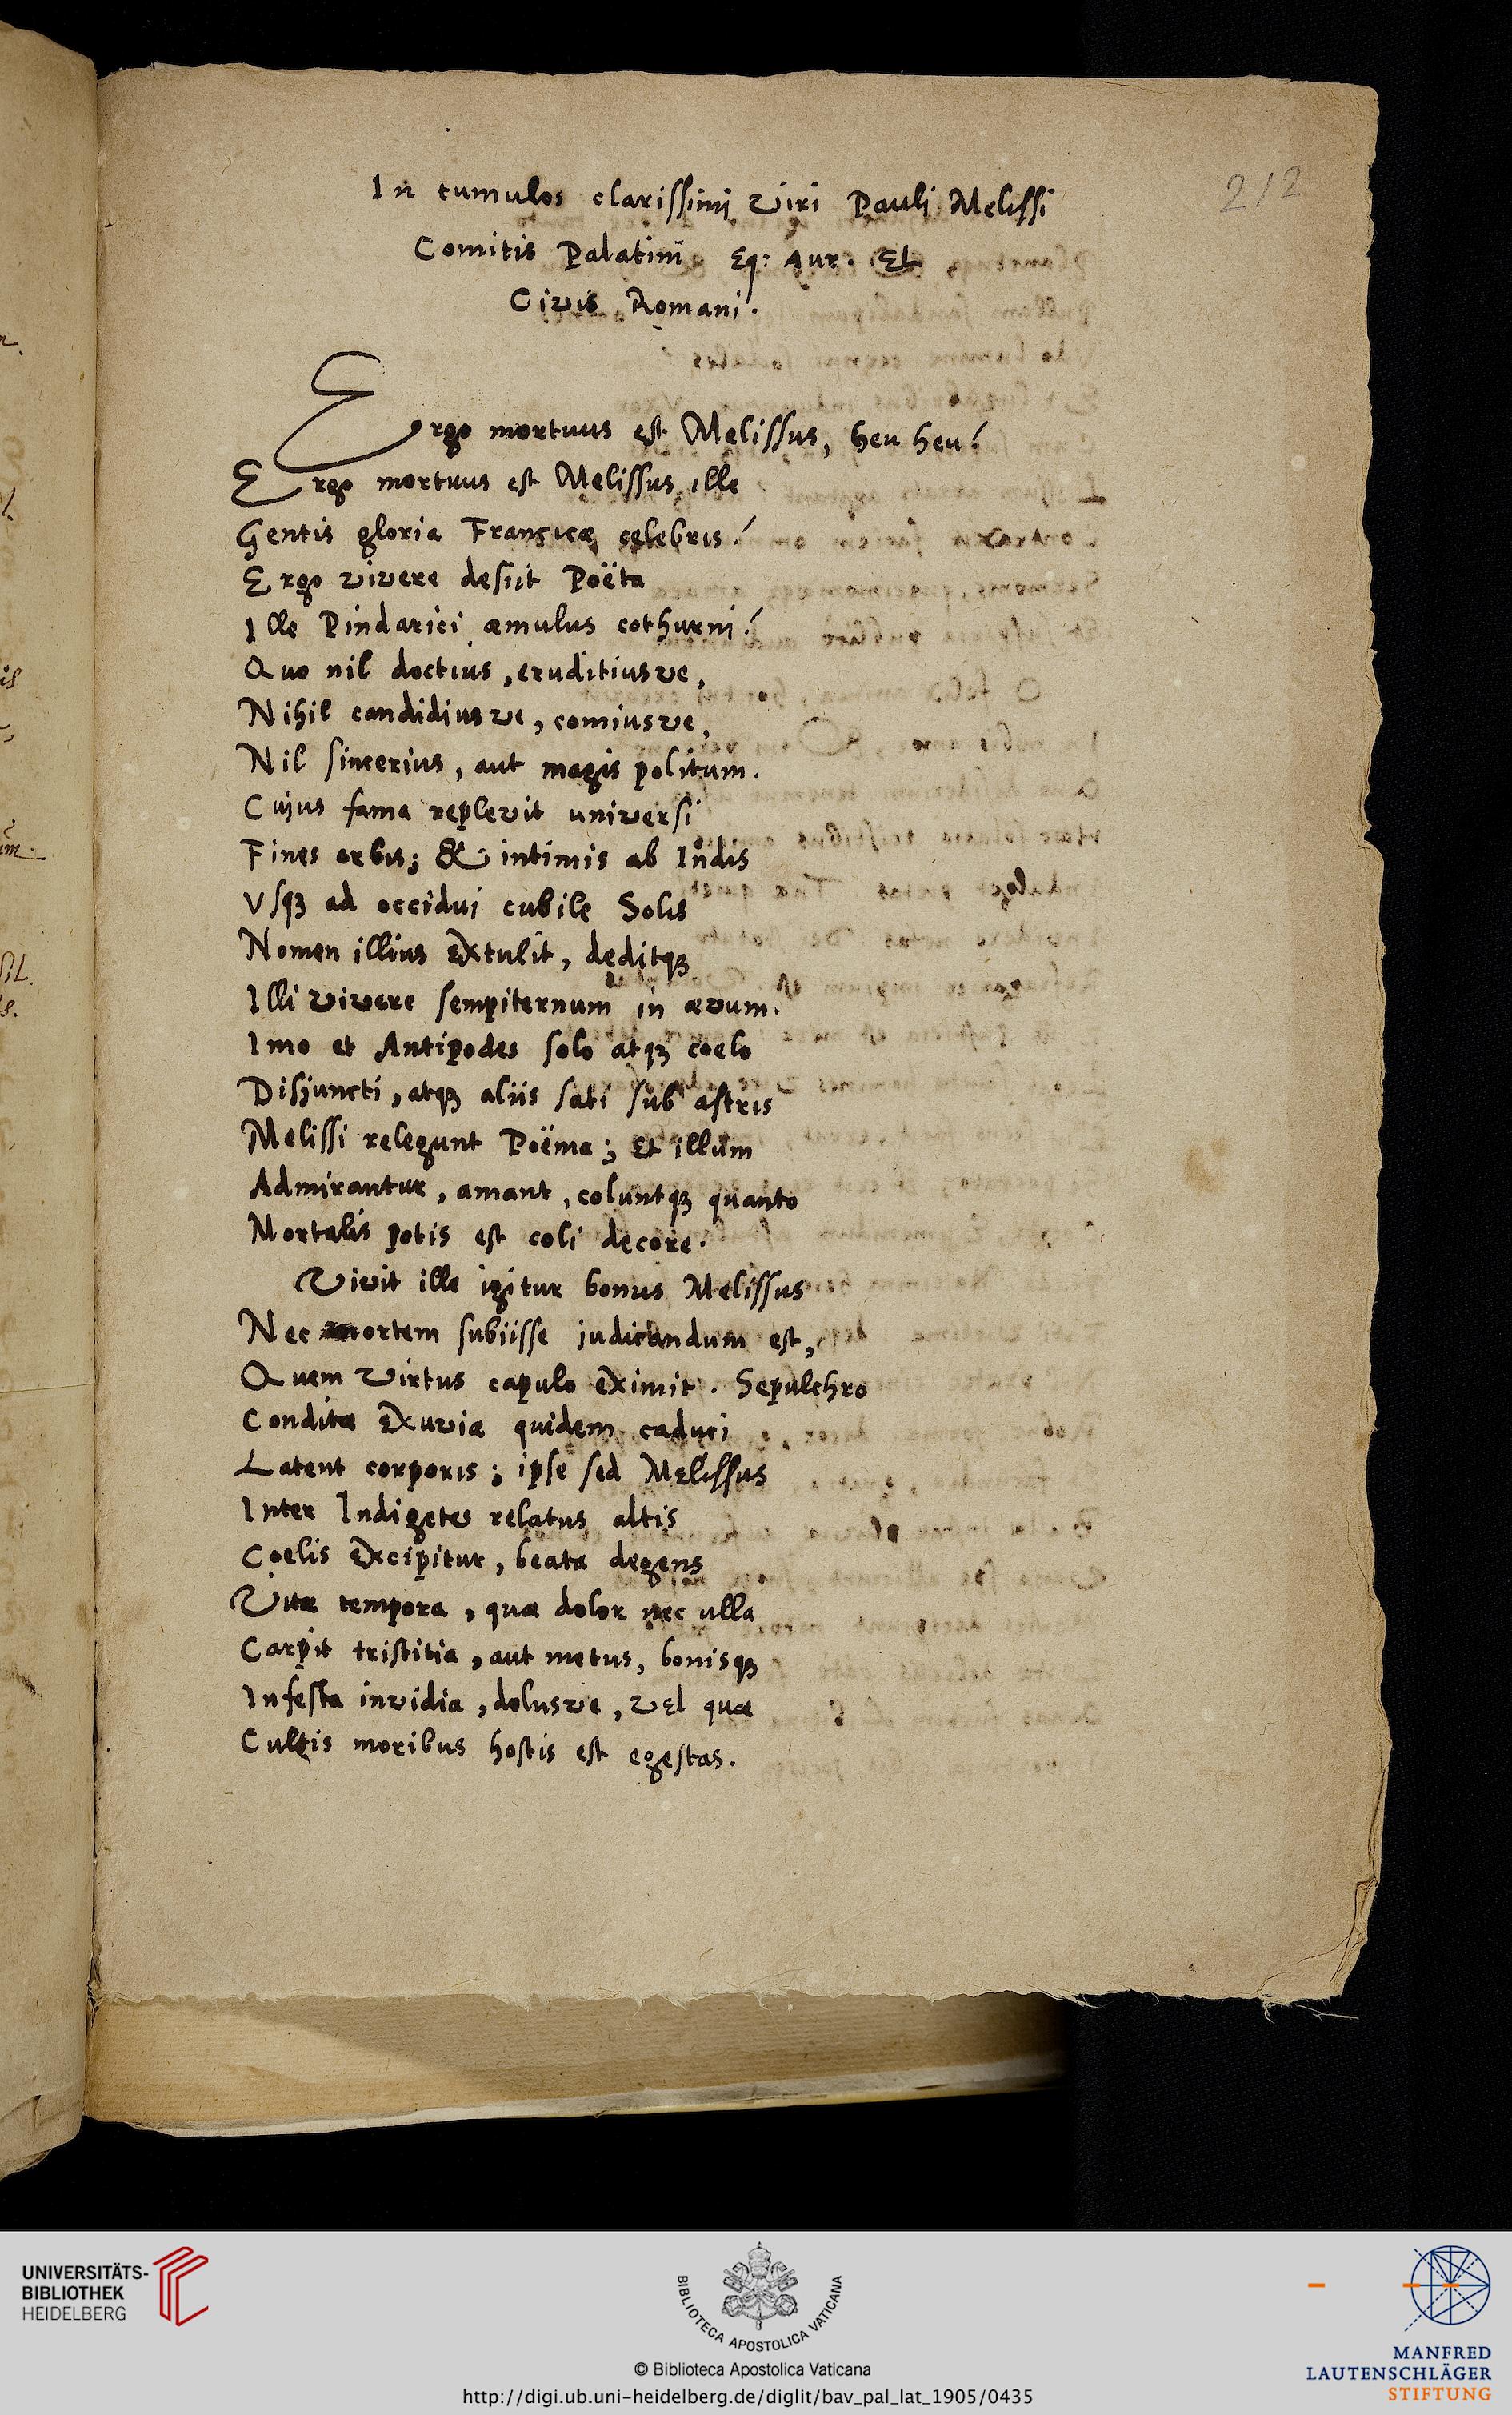 212
In tumulos clarissimi Viri Pauli Melissi
Comitis Palatini Eq: Aur. Et
Civis Romani.
Ergo mortuus est Melissus, heu heu?
Ergo mortuus est Melissus ille
Gentis gloria Francicæ celebris?
Ergo vivere desiit Poëta
Ille Pindarici æmulus cothurni?
Quo nil doctius, eruditiusve,
Nihil candidiusve, comiusve,
Nil sincerius, aut magis politum.
Cujus fama replevit universi
Fines orbis; & intimis ab Indis
Vsq3 ad occidui cubile Solis
Nomen illius extulit, deditq3
Illi vivere sempiternum in ævum.
Imo et Antipodes solo atq3 coelo
Disjuncti, atq3 aliis sati sub astris
Melissi relegunt Poëma; Et illum
Admirantur, amant, coluntq3 quanto
Mortalis potis est coli decore.
Vivit ille igitur bonus Melissus
Nec mortem subiisse judicandum est,
Quem Virtus capulo eximit. Sepulchro
Conditæ Exuviæ quidem caduci
Latent corporis; ipse sed Melissus
Inter Indigetes relatus altis
Coelis Excipitur, beata degens
Vitæ tempora, quæ dolor nec ulla
Carpit tristitia, aut metus, bonisq3
Infesta invidia, dolusve, vel quæ
Cultis moribus hostis est egestas.
UNIVERSITÄTS-
BIBLIOTHEK
HEIDELBERG
BIBLIOTECA APOSTOLICA VATICANA
© Biblioteca Apostolica Vaticana
http://digi.ub.uni-heidelberg.de/diglit/bav_pal_lat_1905/0435
MANFRED
LAUTENSCHLÄGER
STIFTUNG